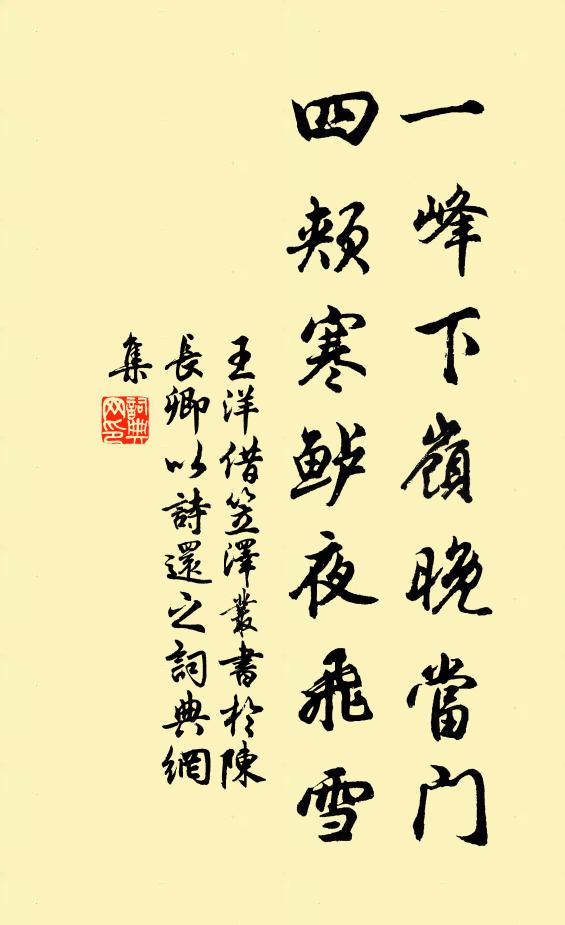 一峰下嶺晚當门
四頰寒鲈夜飛雪
王洋借笠澤叢書於陳
長卿以詩還之詞典網
集
詞典網印